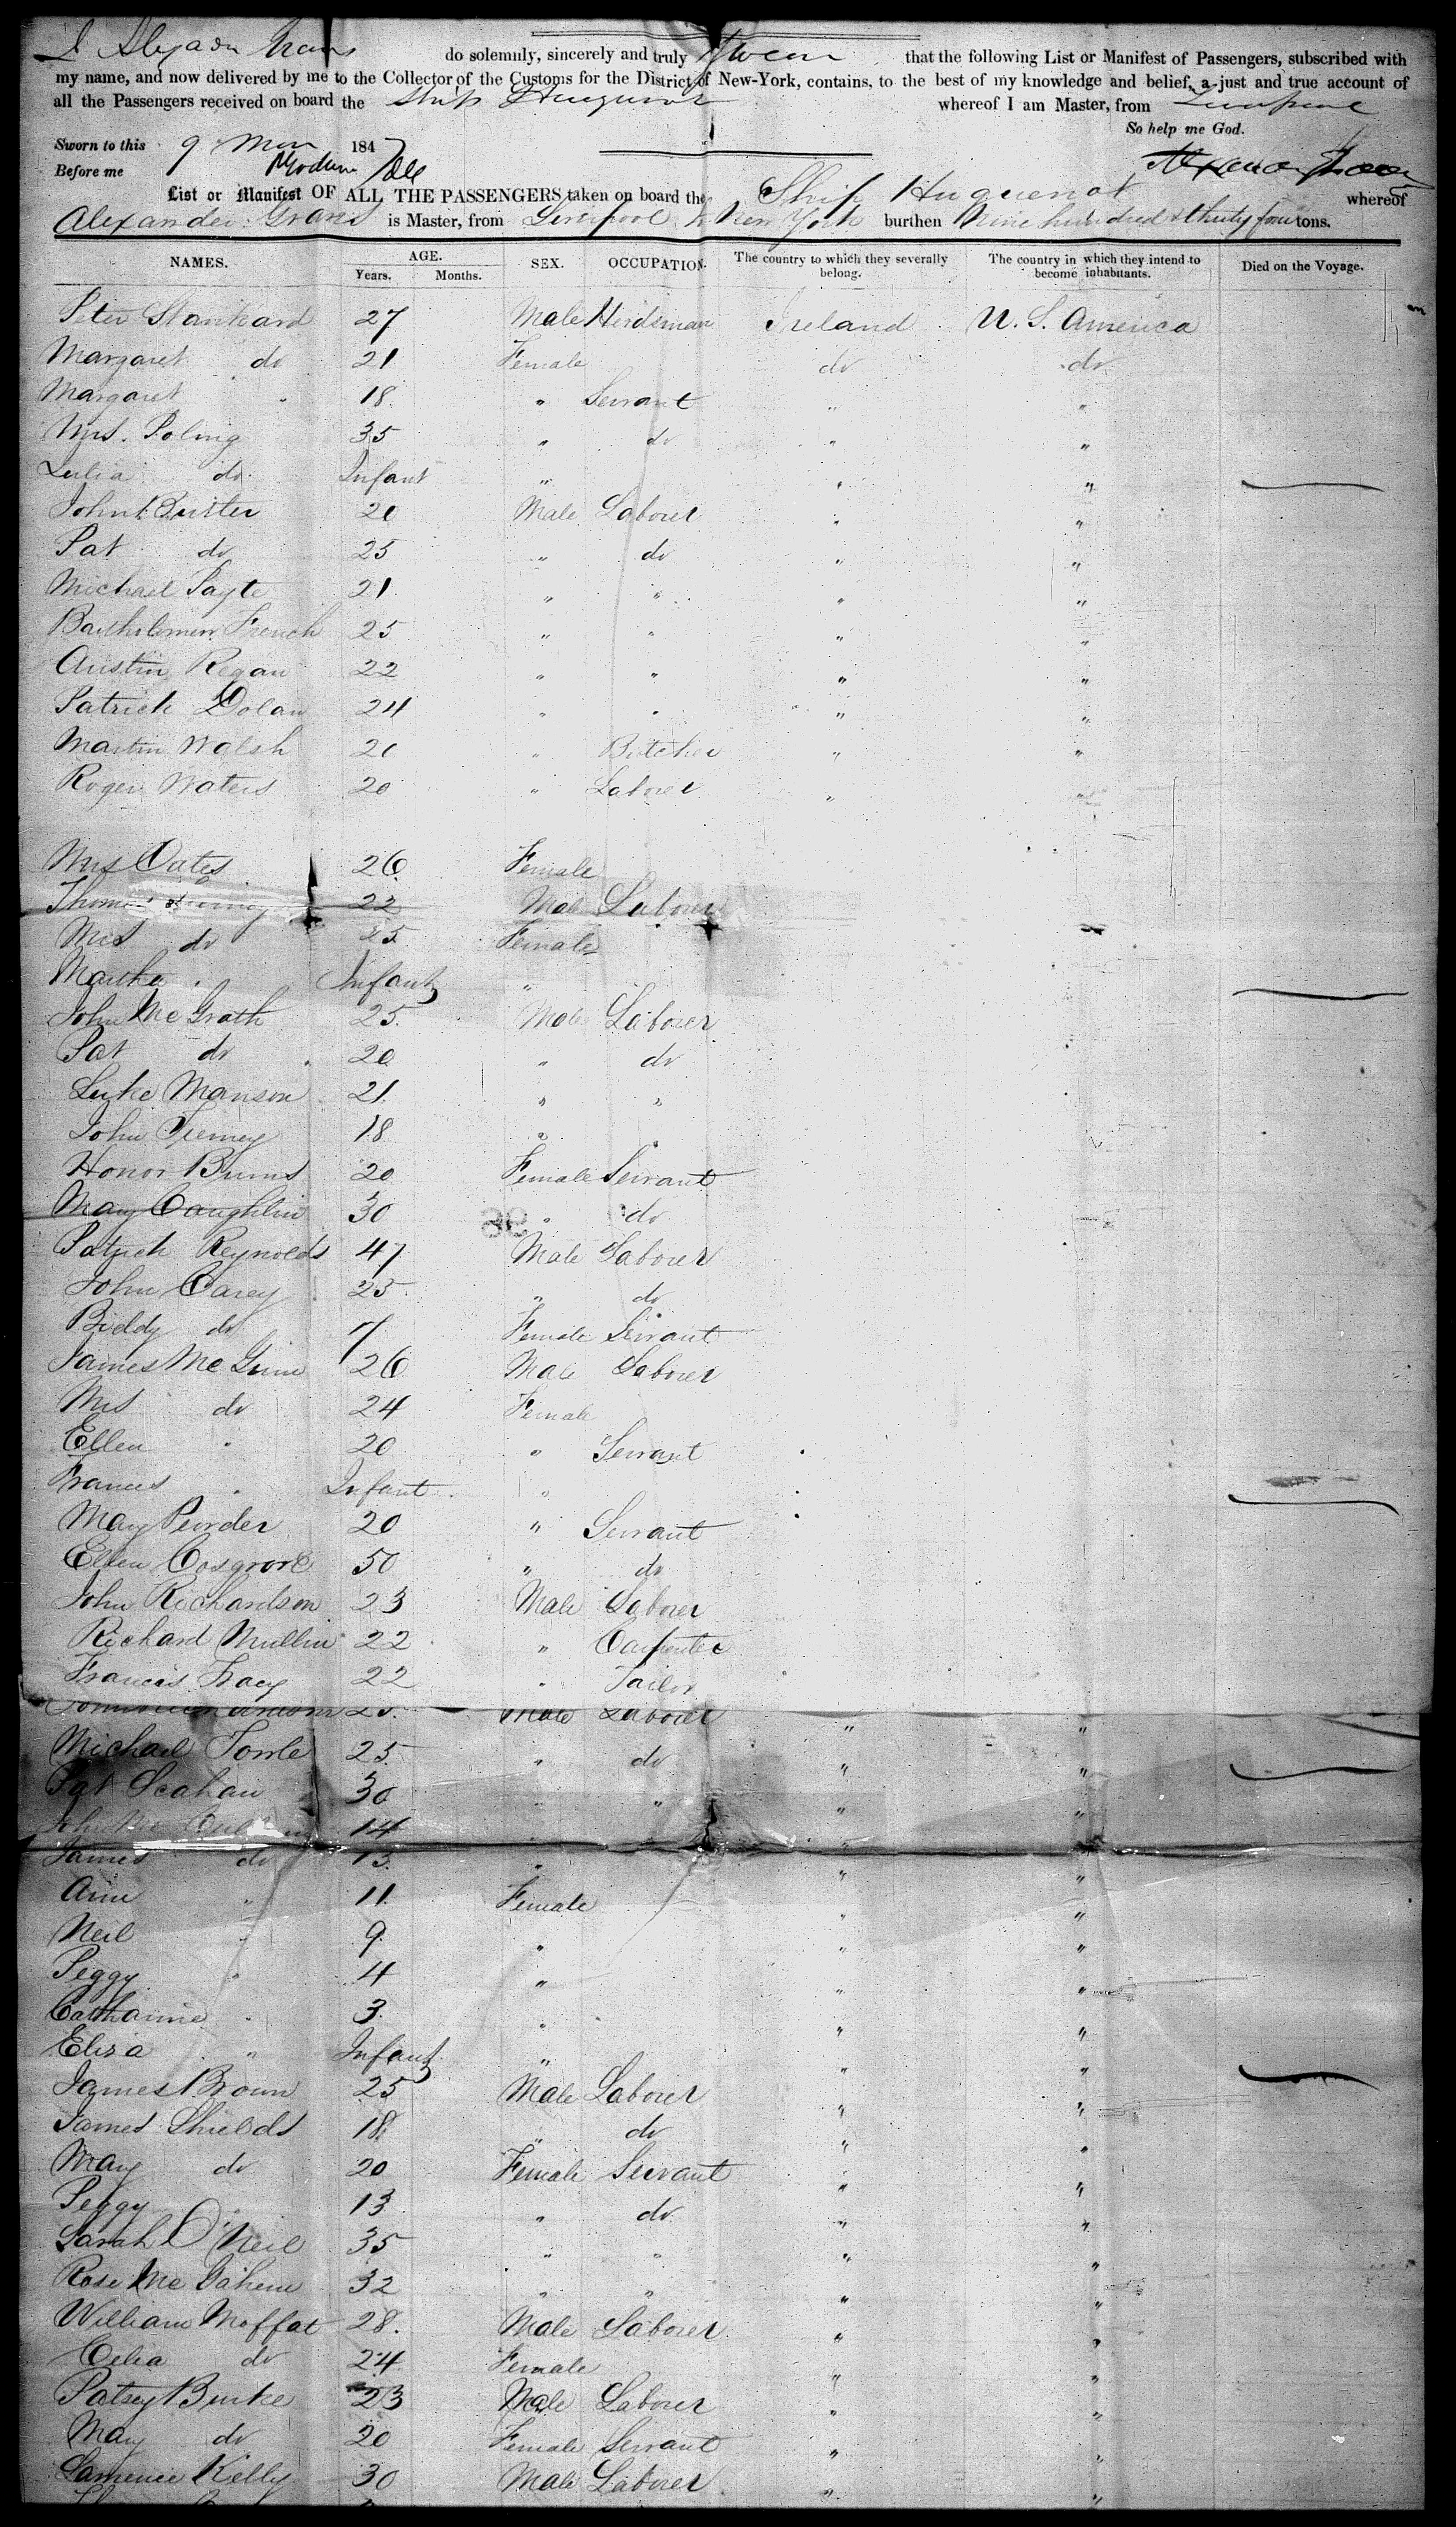 do solemnly, sincerely and truly swear that the following List or Manifest of Passengers, subscribed with
my name, and now delivered by me to the Collector of the Customs for the District of New-York, contains, to the best of my knowledge and belief, a just and true account of
all the Passengers received on board the Ship Huguenot whereof I am Master, from Liverpool
So help me God.
Sworn to this 9 1847
Before me
List or Manifest OF ALL THE PASSENGERS taken on board the Ship Huguenot whereof
Alexander is Master, from Liverpool to New York burthen Nine hundred & thirty four tons.
NAMES. AGE. SEX. OCCUPATION. The country to which they severally belong. The country in which they intend to become inhabitants. Died on the Voyage.
Years. Months.
Peter Stankard 27 Male Herdsman Ireland U. S. America
Margaret do 21 Female do do
Margaret " 18 " Servant " "
Mrs. Poling 35 " do " "
Infant " " "
John 20 Male Laborer " "
Pat do 25 " do " "
Michael 21 " " " "
Bartholomew French 25 " " " "
Austin Regan 22 " " " "
Patrick Dolan 24 " " " "
Martin Walsh 20 " Butcher " "
Roger Waters 20 " Laborer " "
Mrs Oates 26 Female
Thomas 22 Male Laborer
Mrs do 25 Female
Martha " Infant "
John McGrath 25 Male Laborer
Pat do 20 " do
Luke Manson 21 " "
John Tierney 18 " "
Honor Burns 20 Female Servant
Mary Coughlin 30 " do
Patrick Reynolds 47 Male Laborer
John Carey 25 " do
Biddy do 7 Female Servant
James 26 Male Laborer
Mrs do 24 Female
Ellen " 20 " Servant
Frances " Infant "
Mary 20 " Servant
Ellen Cosgrove 50 " do
John Richardson 23 Male Laborer
Richard Mullin 22 " Carpenter
Francis Tracy 22 " Tailor
25 Male Laborer " "
Michael Towle 25 " do " "
Pat 30 " " " "
John 14 " "
James do 13 " " "
Ann " 11 Female " "
Neil " 9 " " "
Peggy " 4 " " "
Catharine " 3 " " "
Eliza " Infant " " "
James Brown 25 Male Laborer " "
James Shields 18 " do " "
Mary do 20 Female Servant " "
Peggy " 13 " do " "
Sarah O'Neil 35 " " " "
Rose 32 " " " "
William Moffat 28 Male Laborer " "
Celia do 24 Female " "
Patsey Burke 23 Male Laborer " "
Mary do 20 Female Servant " "
Kelly 30 Male Laborer " "